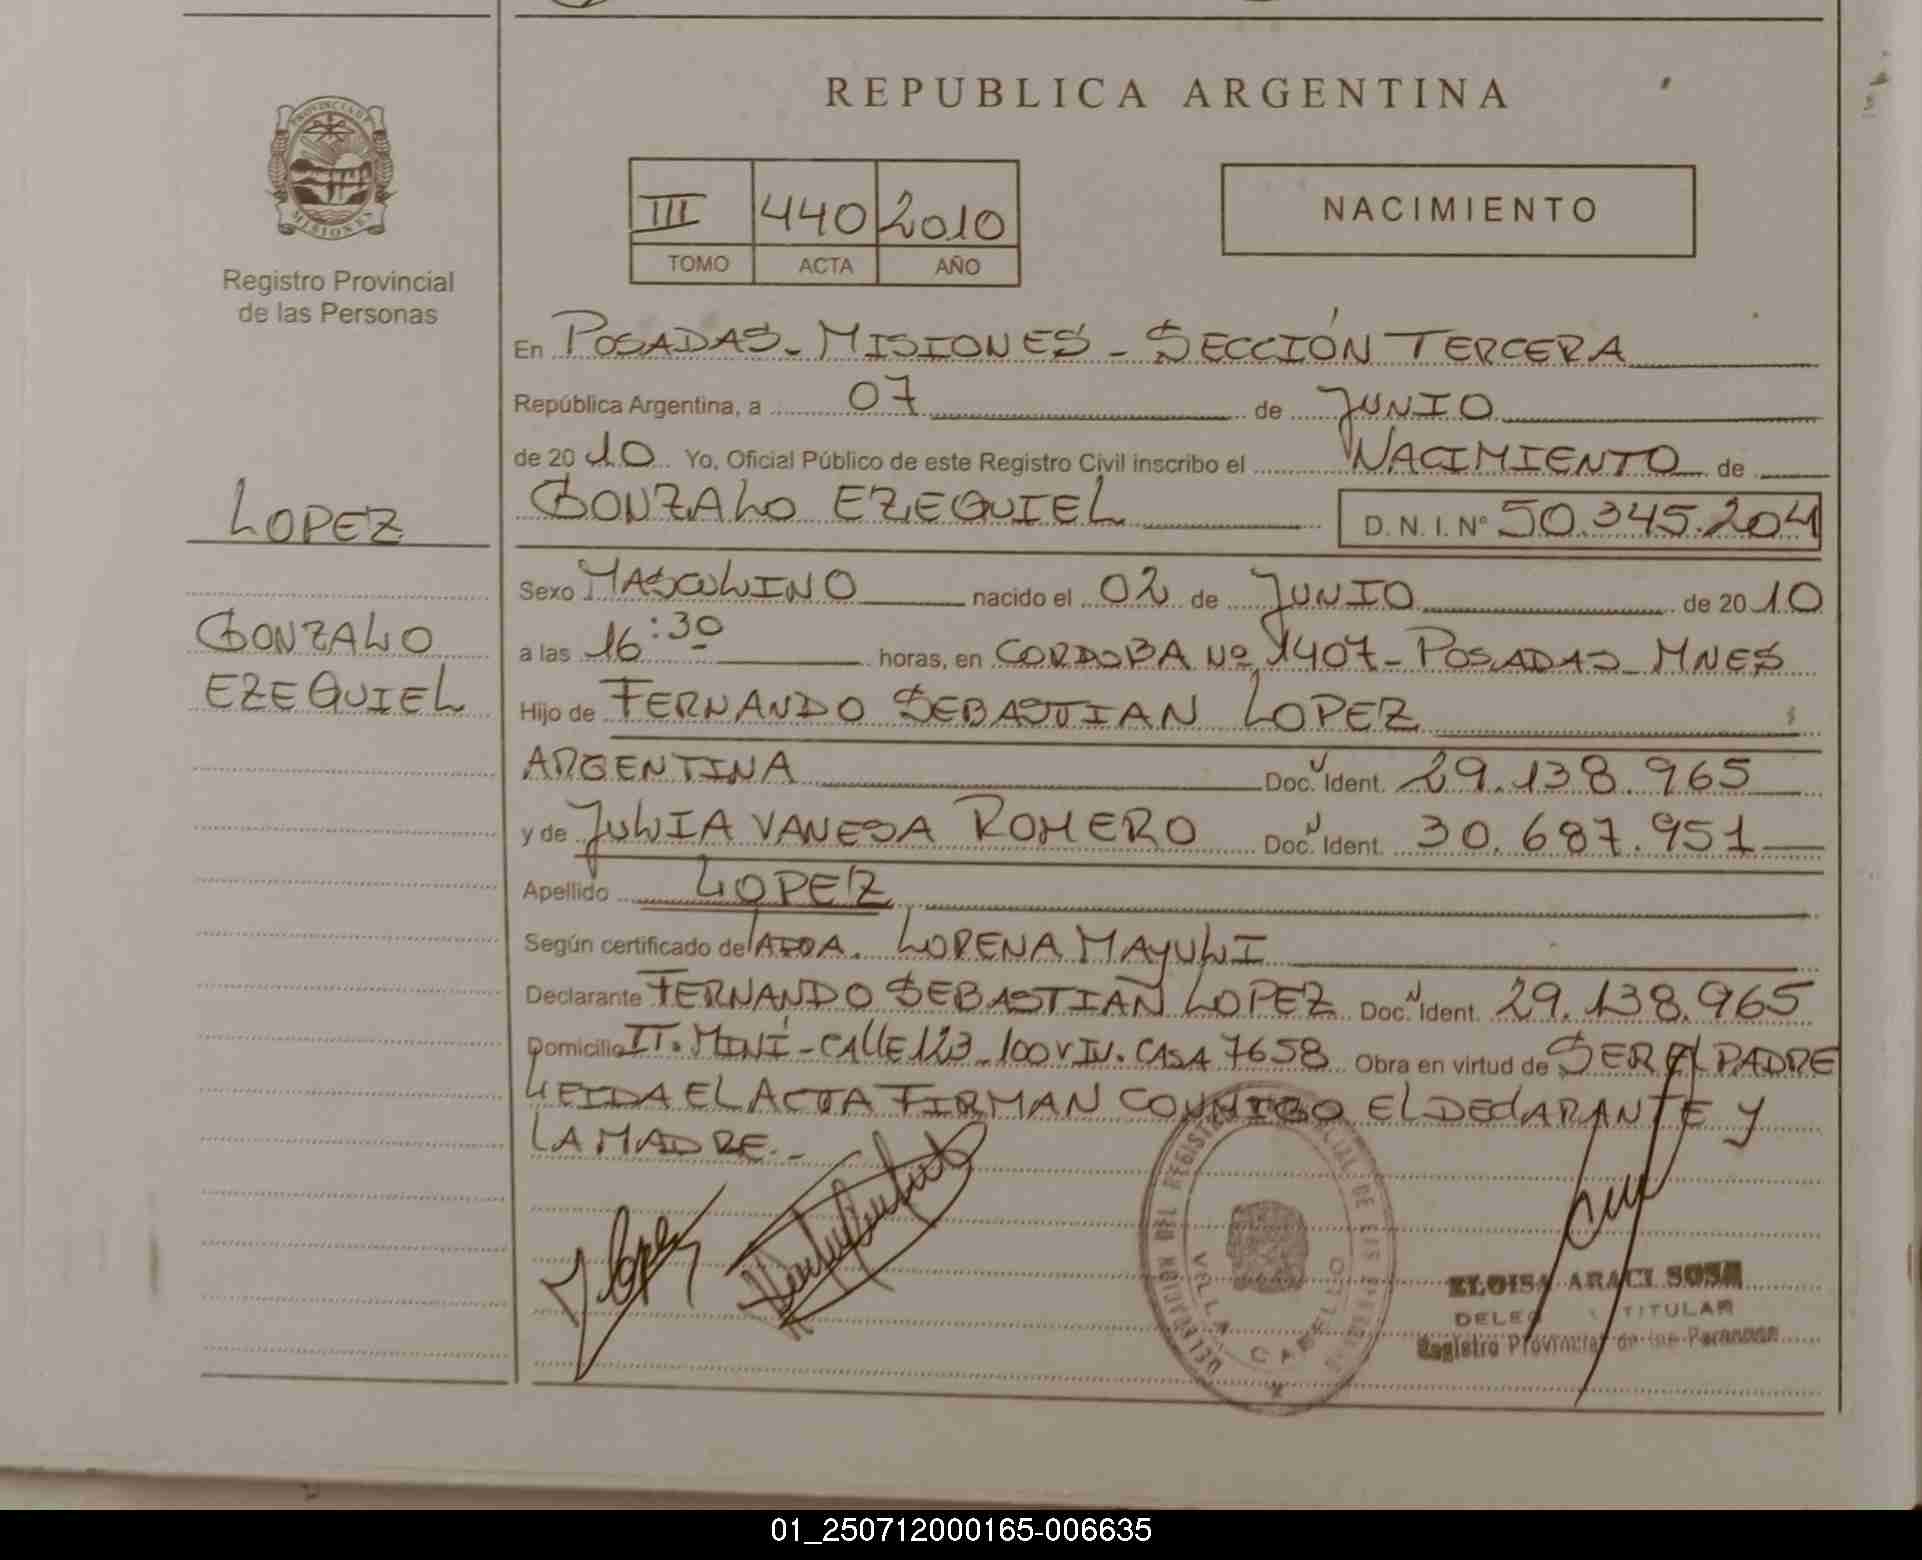 REPUBLICA ARGENTINA
PROVINCIA DE
MISIONES
Registro Provincial
de las Personas
III 440 2010
TOMO ACTA AÑO
NACIMIENTO
En POSADAS - MISIONES - SECCIÓN TERCERA
República Argentina, a 07 de JUNIO
de 2010 Yo, Oficial Público de este Registro Civil inscribo el NACIMIENTO de
GONZALO EZEQUIEL D. N. I. Nº 50.345.204
LOPEZ
GONZALO
EZEQUIEL
Sexo MASCULINO nacido el 02 de JUNIO de 2010
a las 16:30 horas, en CORDOBA Nº 1407 - POSADAS - MNES
Hijo de FERNANDO SEBASTIAN LOPEZ
ARGENTINA Doc. Ident. 29.138.965
y de JULIA VANESA ROMERO Doc. Ident. 30.687.951
Apellido LOPEZ
Según certificado de LORENA MAYULI
Declarante FERNANDO SEBASTIAN LOPEZ Doc. Ident. 29.138.965
Domicilio IT. MINÍ - CALLE 123 - 100 VIV. CASA 7658 Obra en virtud de SER EL PADRE
LEIDA EL ACTA FIRMAN CONMIGO EL DECLARANTE Y
LA MADRE. -
DELEGACION DEL REGISTRO PROVINCIAL DE LAS PERSONAS
VILLA CABELLO
ELOISA ARACI SOSA
TITULAR
Registro Provincial de las Personas
01_250712000165-006635